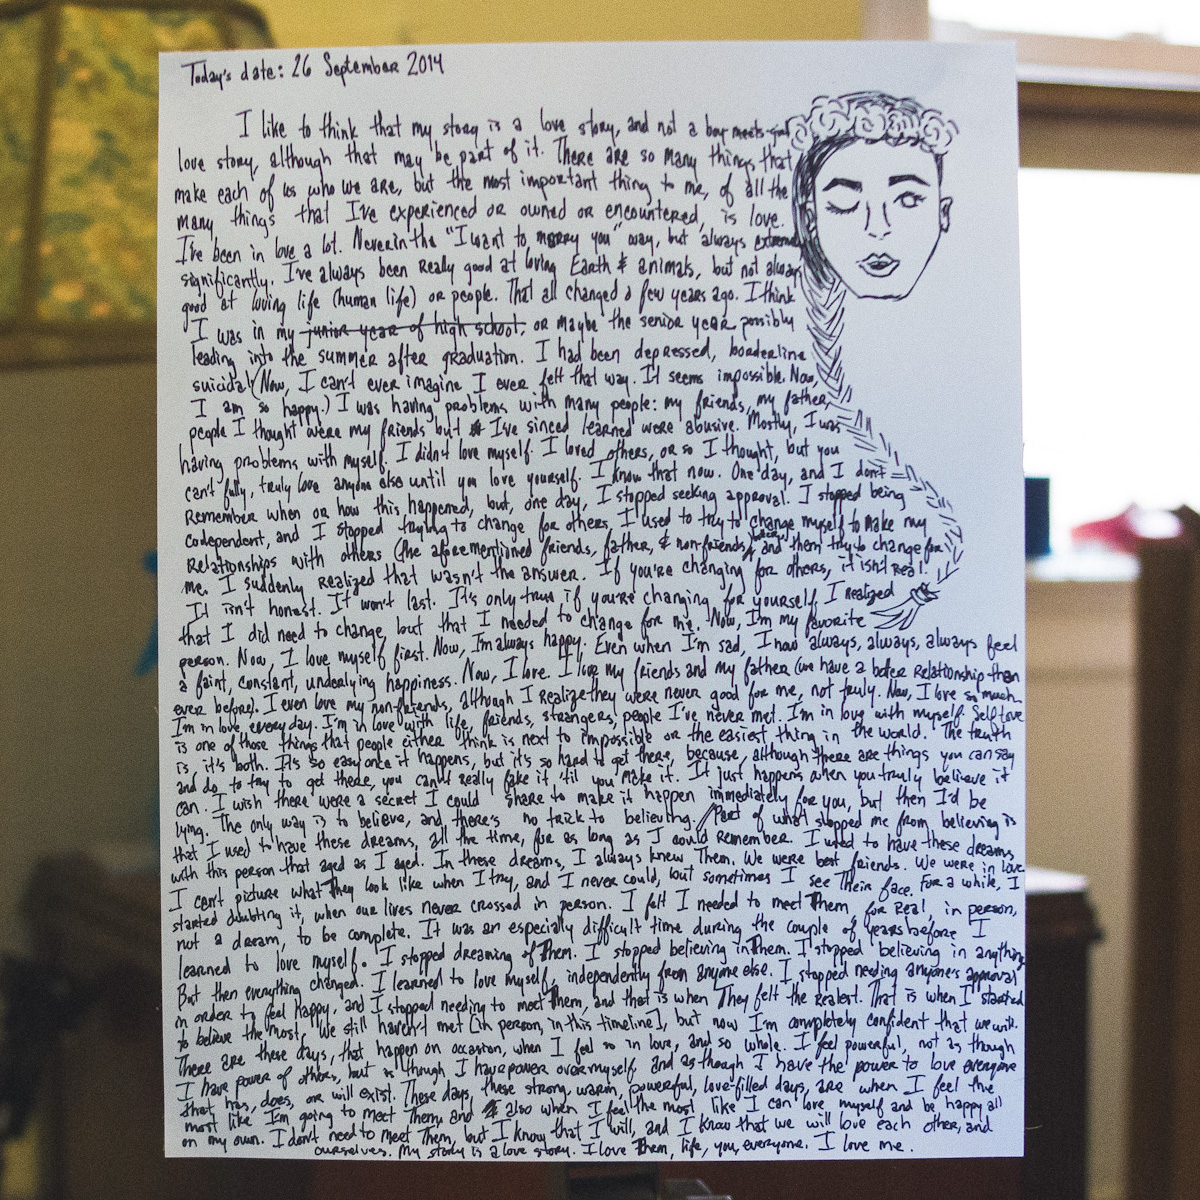 Today's date: 26 September 2014
I like to think that my story is a love story, and not a boy-meets-girl
love story, although that may be part of it. There are so many things that
make each of us who we are, but the most important thing to me, of all the
many things that I've experienced or owned or encountered, is love.
I've been in love a lot. Never in the "I want to marry you" way, but always
significantly. I've always been really good at loving Earth & animals, but not always
good at loving life (human life) or people. That all changed a few years ago. I think
I was in my junior year of high school, or maybe the senior year possibly
leading into the summer after graduation. I had been depressed, borderline
suicidal. (Now, I can't ever imagine I ever felt that way. It seems impossible. Now,
I am so happy.) I was having problems with many people: my friends, my father,
people I thought were my friends but I've sinced learned were abusive. Mostly, I was
having problems with myself. I didn't love myself. I loved others, or so I thought, but you
can't fully, truly love anyone else until you love yourself. I know that now. One day, and I don't
remember when or how this happened, but, one day, I stopped seeking approval. I stopped being
codependent, and I stopped trying to change for others. I used to try to change myself to make my
relationships with others (the aforementioned friends, father, & non-friends) and them try to change for
me. I suddenly realized that wasn't the answer. If you're changing for others, it isn't real.
It isn't honest. It won't last. It's only true if you're changing for yourself. I realized
that I did need to change, but that I needed to change for me. Now, I'm my favorite
person. Now, I love myself first. Now, I'm always happy. Even when I'm sad, I now always, always, always feel
a faint, constant, underlying happiness. Now, I love. I love my friends and my father (we have a better relationship than
ever before). I even love my non-friends, although I realize they were never good for me, not truly. Now, I love so much.
I'm in love, every day. I'm in love with life, friends, strangers, people I've never met. I'm in love with myself. Self love
is one of those things that people either think is next to impossible or the easiest thing in the world. The truth
is, it's both. It's so easy once it happens, but it's so hard to get there, because, although there are things you can say
and do to try to get there, you can't really fake it 'til you make it. It just happens when you truly believe it
can. I wish there were a secret I could share to make it happen immediately for you, but then I'd be
lying. The only way is to believe, and there's no trick to believing. Part of what stopped me from believing is
that I used to have these dreams, all the time, for as long as I could remember. I used to have these dreams
with this person that aged as I aged. In these dreams, I always knew Them. We were best friends. We were in love.
I can't picture what They look like when I try, and I never could, but sometimes I see Their face. For a while, I
started doubting it, when our lives never crossed in person. I felt I needed to meet Them for real, in person,
not a dream, to be complete. It was an especially difficult time during the couple of years before I
learned to love myself. I stopped dreaming of Them. I stopped believing in Them. I stopped believing in anything.
But then everything changed. I learned to love myself, independently from anyone else. I stopped needing anyone's approval
in order to feel happy, and I stopped needing to meet Them, and that is when They felt the realest. That is when I started
to believe the most. We still haven't met [in person, in this timeline], but now I'm completely confident that we will.
There are these days, that happen on occasion, when I feel so in love, and so whole. I feel powerful, not as though
I have power of others, but as though I have power over myself and as though I have the power to love everyone
that has, does, or will exist. These days, these strong, warm, powerful, love-filled days, are when I feel the
most like I'm going to meet Them, and also when I feel the most like I can love myself and be happy all
on my own. I don't need to meet Them, but I know that I will, and I know that we will love each other, and
ourselves. My story is a love story. I love Them, life, you, everyone. I love me.